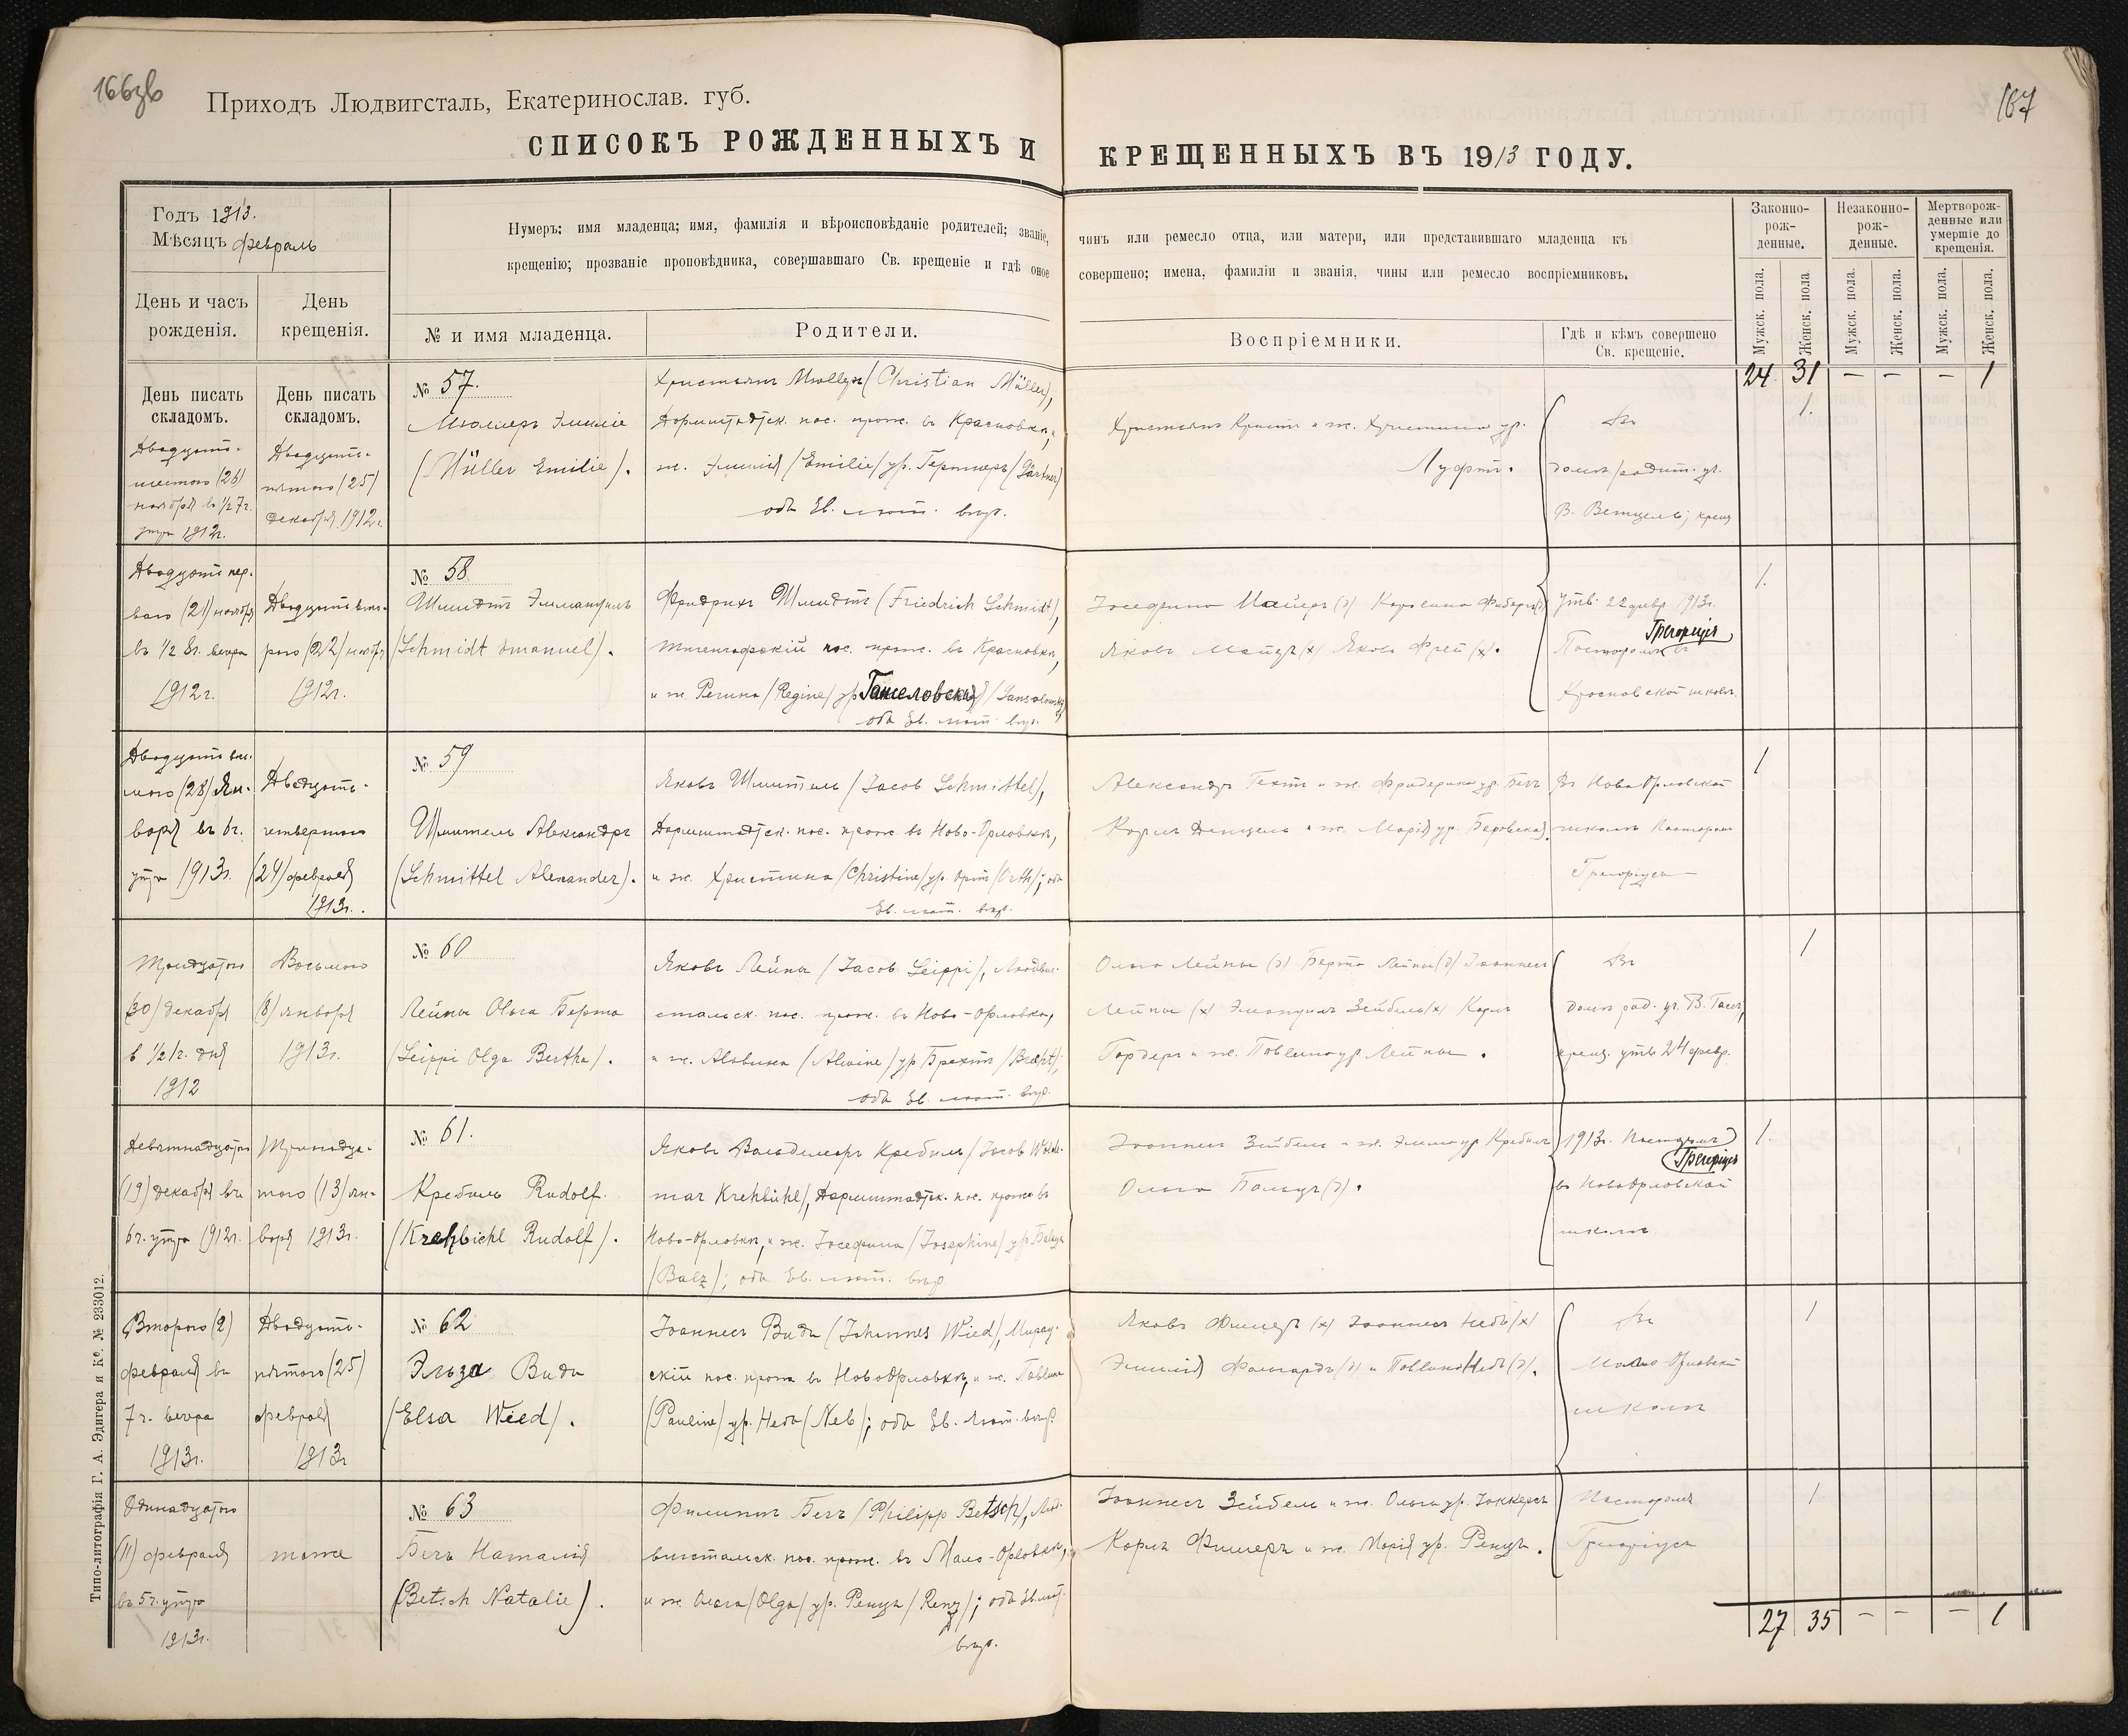 166об
167
Приходъ Людвигсталь, Екатеринослав. губ.
СПИСОКЪ РОЖДЕННЫХЪ И КРЕЩЕННЫХЪ ВЪ 1913 ГОДУ.
Годъ 1913.
Мѣсяцъ февраль
Нумеръ; имя младенца; имя, фамилія и вѣроисповѣданіе родителей; званіе, чинъ или ремесло отца, или матери, или представившаго младенца къ
крещенію; прозваніе проповѣдника, совершавшаго Св. крещеніе и гдѣ оное совершено; имена, фамиліи и званія, чины или ремесло воспріемниковъ.
Законно-
рож-
денные.
Незаконно-
рож-
денные.
Мертворож-
денные или
умершіе до
крещенія.
День и часъ
рожденія.
День
крещенія.
№ и имя младенца.
Родители.
Воспріемники.
Гдѣ и кѣмъ совершено
Св. крещеніе.
Мужск. пола.
Женск. пола
Мужск. пола.
Женск. пола.
Мужск. пола.
Женск. пола.
24 31 – – – 1
День писать
складомъ.
Двадцать-
шестого (26)
ноября въ ½ 7 ч.
утра 1912 г.
День писать
складомъ.
Двадцать-
пятого (25)
декабря 1912 г.
№ 57.
Мюллеръ Эмилie
(Müller Emilie).
Христьянъ Мюллеръ (Christian Müller),
Дармштадтск. пос. прож. въ Красновкѣ,
ж. Эмилія (Emilie) ур. Гертнеръ (Gärtner)
оба Ев. лют. вѣр.
Христьянъ Кристъ и ж. Христина ур.
Луфтъ.
Въ
домѣ родит. уч.
В. Ветцель; крещ
1.
Двадцать пер-
ваго (21) ноября
въ ½ 8 ч. вечера
1912 г.
Двадцать вто-
рого (22) ноября
1912 г.
№ 58
Шмидтъ Эммануилъ
(Schmidt Emanuel).
Фридрихъ Шмидтъ (Friedrich Schmidt),
Тигенгофскій пос. прож. въ Красновкѣ,
и ж. Регина (Regine) ур. Ганселовская
оба Ев. лют. вѣр.
Іосефина Майеръ (д) Каролина
Яковъ Майеръ (х) Яковъ Фрей (х).
утв. 22 февр. 1913 г.
Пасторомъ Грегоріусъ въ
Красновской школѣ.
1.
Двадцать вось-
мого (28) Ян-
варя въ 6 ч.
утра 1913 г.
Двадцать-
четвертого
(24) февраля
1913 г.
№ 59
Шмитель Александръ
(Schmittel Alexander).
Яковъ Шмитель (Jacob Schmittel),
Дармштадтск. пос. прож. въ Ново-Орловкѣ,
и ж. Христина (Christine) ур. Ортъ (Orth); оба
Ев. лют. вѣр.
Александръ Гехтъ и ж. Фридерика ур. Бечъ
Карлъ Денцель и ж. Марія ур. Беровская.
Въ Ново Орловской
школѣ Пасторомъ
Грегоріусъ
1
Тридцатого
(30) декабря
в ½ 1 г. дня
1912
Восьмого
(8) января
1913 г.
№ 60
Лейпи Ольга Берта
(Leippi Olga Bertha).
Яковъ Лейпи (Jacob Leippi), Людвиг-
стальск. пос. прож. въ Ново-Орловкѣ,
и ж. Альвина (Alwine) ур. Брехтъ (Brecht);
оба Ев. лют. вѣр.
Ольга Лейпи (д) Берта Лейпи (д) Іоаннесъ
Лейпи (х) Эмануилъ Зейбель (х) Карлъ
и ж. Павлина ур. Лейпи.
Въ
домѣ род. уч. В.
крещ. утв 24 февр.
1
Девятнадцатого
(19) декабря въ
6 ч. утра 1912 г.
Тринадца-
того (13) ян-
варя 1913 г.
№ 61.
Кребиль Rudolf.
(Krehbiehl Rudolf).
Яковъ Вольдемаръ Кребиль (Jacob Wolde-
mar Krehbühl), Дармштадтск. пос. прож. въ
Ново-Орловкѣ, и ж. Іосефина (Josephine) ур. Бальцъ
(Balz); оба Ев. лют. вѣр.
Іоаннесъ Зейбель и ж. Эмма ур. Кребиль
Ольга Бальцъ (д).
1913 г. Пасторомъ
Грегоріусъ
въ Ново Орловской
школѣ
1.
Второго (2)
февраля въ
7 ч. вечера
1913 г.
Двадцать-
пятого (25)
февраля
1913 г
№ 62
Эльза Видъ
(Elsa Wied).
Іоаннесъ Видъ (Johannes Wied), Мирау-
скій пос. прож. въ Ново Орловкѣ, и ж. Павлина
(Pauline) ур. Небъ (Neb); оба Ев. Лют. вѣр.
Яковъ Фишеръ (х) Іоаннесъ Небъ (х)
Эмилія Фольгардъ (д) и Павлина Небъ (д).
Въ
Мало-Орловской
школѣ
1
Одинадцатого
(11) февраля
въ 5 ч. утра
1913 г.
тоже
№ 63
Бечъ Наталія
(Betsch Natalie).
Филиппъ Бечъ (Philipp Betsch), Люд-
вигстальск. пос. прож. въ Мало-Орловкѣ,
и ж. Ольга (Olga) ур. Ренцъ (Renz); оба Ев. лют.
вѣр.
Іоаннесъ Зейбель и ж. Ольга ур. Іоккерсъ
Карлъ Фишеръ и ж. Марія ур. Ренцъ.
Пасторомъ
Грегоріусъ
1
27 35 – – – 1
Типо-литографія Г. А. Эдигера и Кº. № 233012.